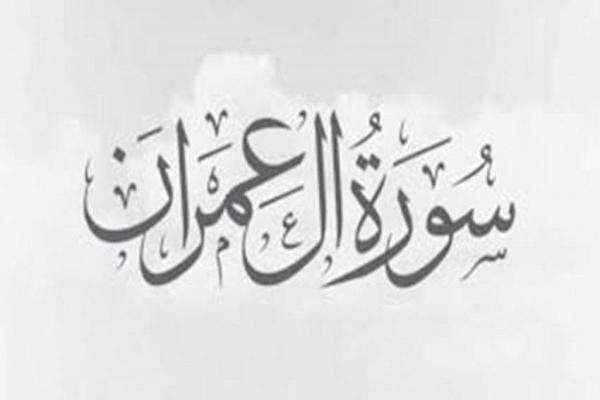 سُورَةُ ال عِمرَان